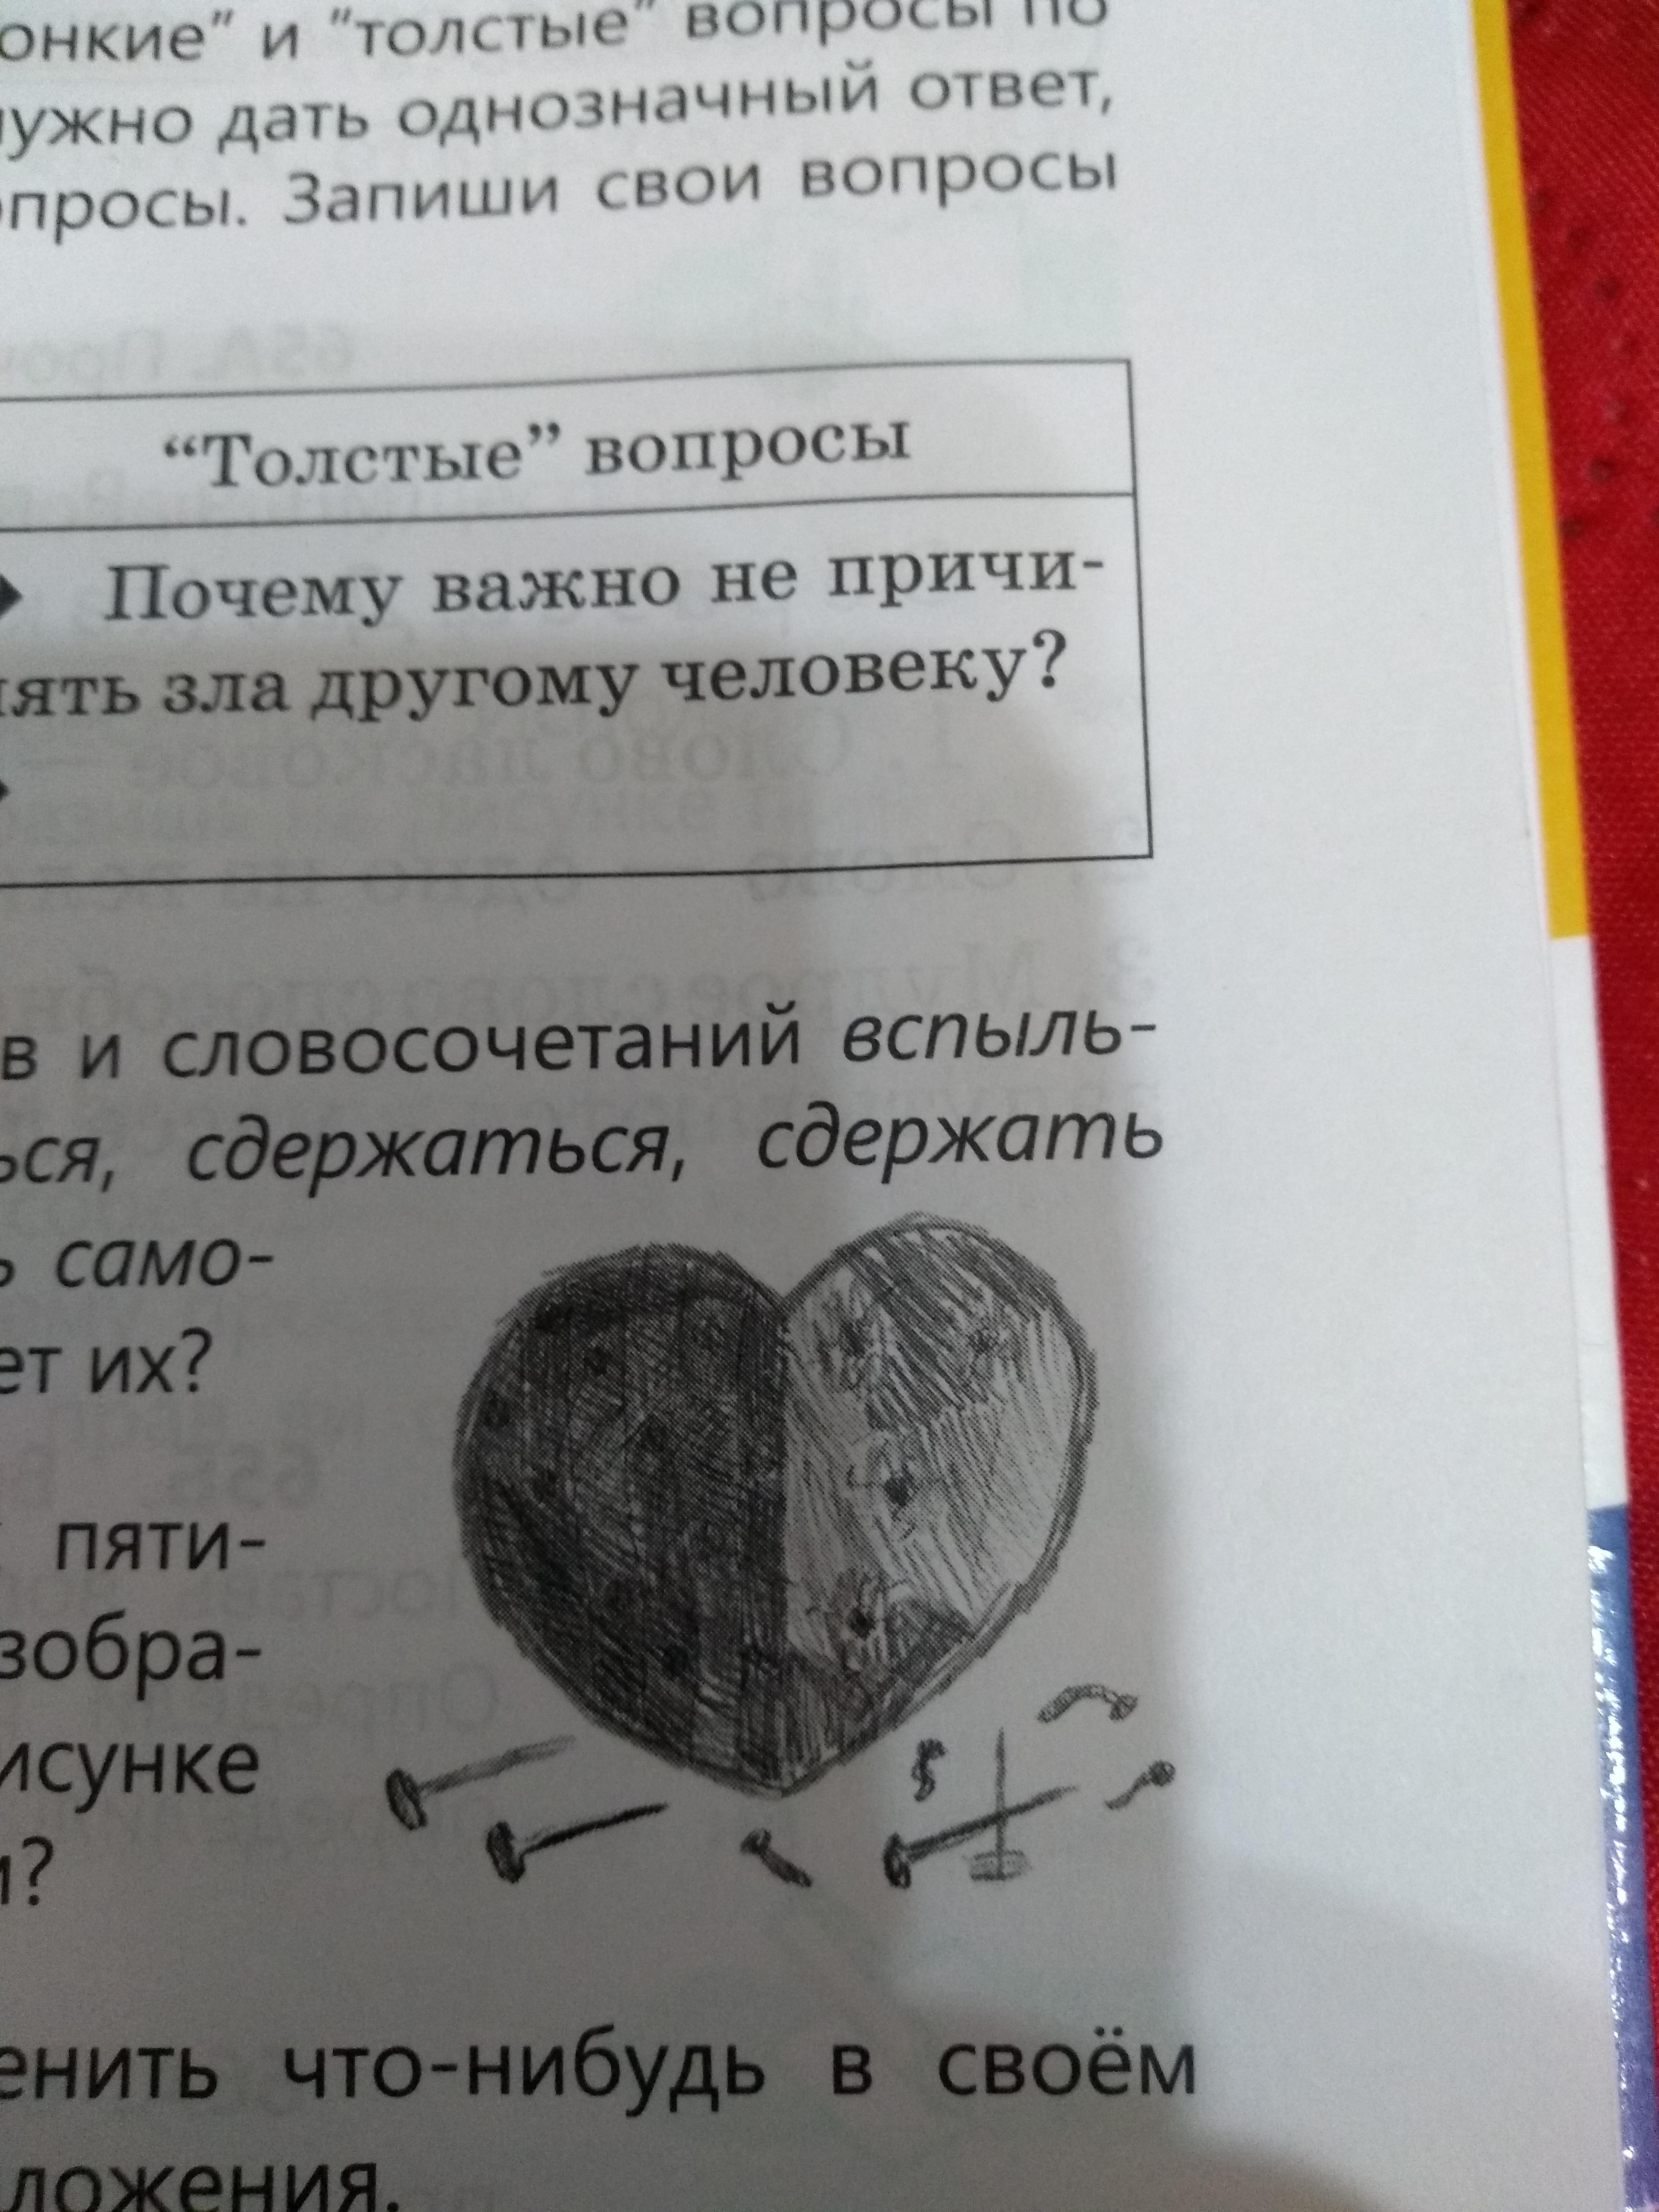 онкие" и "толстые" вопросы по
нужно дать однозначный ответ,
опросы. Запиши свои вопросы
“Толстые” вопросы
Почему важно не причи-
нять зла другому человеку?
в и словосочетаний вспыль-
ься, сдержаться, сдержать
ь само-
ет их?
пяти-
зобра-
исунке
и?
енить что-нибудь в своём
ложения.